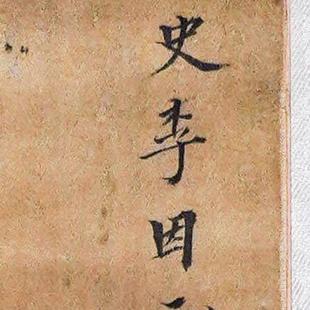 史李因